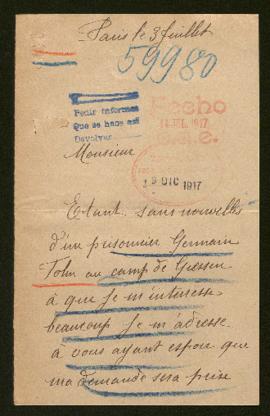 Paris le 3 Juillet
59980
Pedir informes
Que se hace así
Devolver
Fecho
JUL. 1917
Monsieur
15 DIC 1917
Etant sans nouvelles
d'un prisonnier Germain
John au camp de Giessen
à que je m'intéresse
beaucoup je m'adresse
à vous ayant espoir que
ma demande sera prise